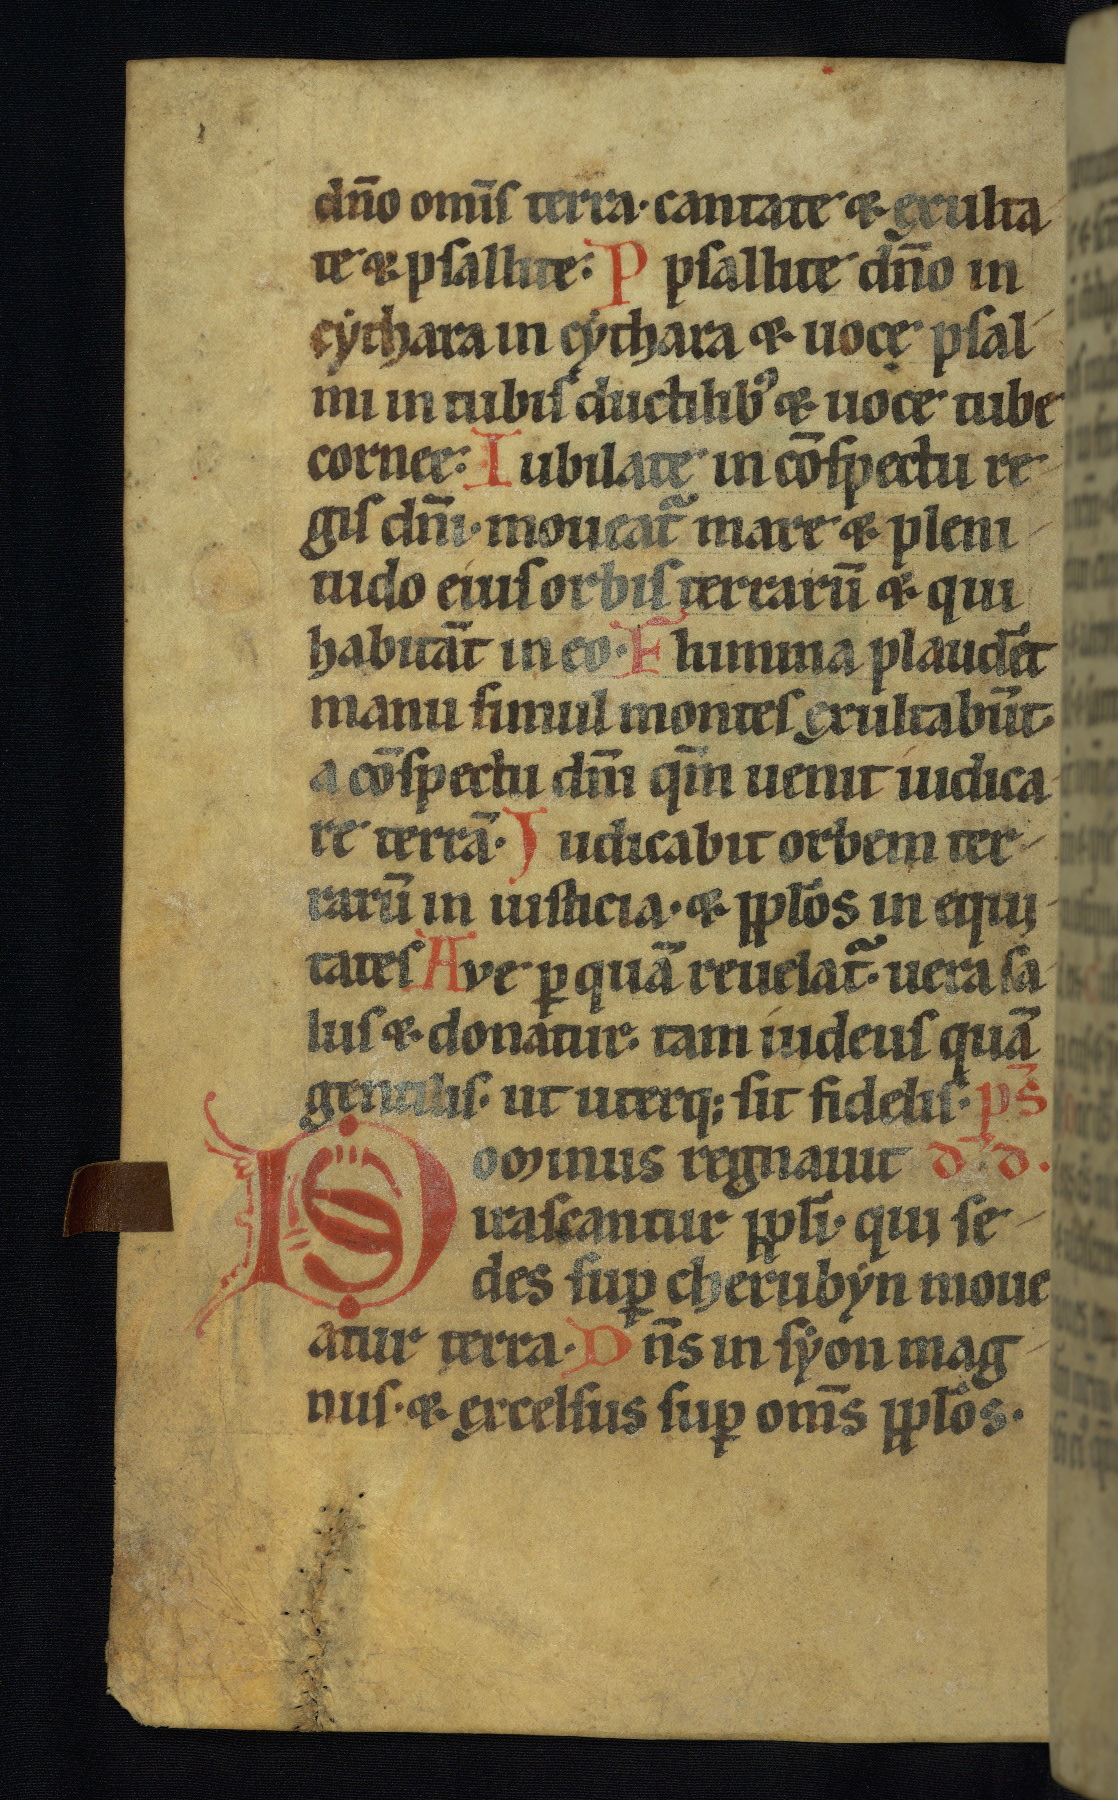 dn̄o om̄is terra· cantate & exulta
te & psallite: P psallite dn̄o in
cẏthara in cẏthara & uoce psal
mi in tubis ductilib⁹ & uoce tube
cornee: Iubilate in cōspectu re
gis dn̄i· moueat᷑ mare & pleni
tudo eius orbis terrarū & qui
habitāt in eo· Flumina plaudēt
manu simul montes exultabūt·
a cōspectu dn̄i qm̄ uenit iudica
re terrā· Iudicabit orbem ter
rarū in iusticia· & ppl̄os in equi
tates Ave ꝑ quā reuelat᷑· uera sa
lus & donatur· tam iudeus quā
gentilis· ut uterq; sit fidelis· ps̄
Dominus regnauit d̄· d·
irascantur ppl̄i· qui se
des suꝑ cherubẏn moue
atur terra· Dn̄s in sẏon mag
nus· & excelsus suꝑ om̄s ppl̄os·